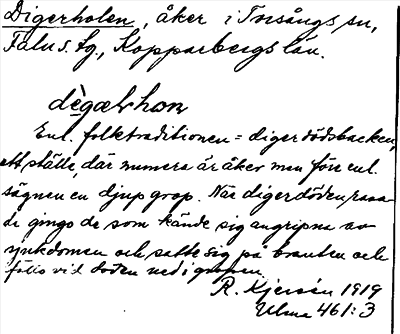 Digerholen, åker i Torsångs sn,
Falu s. tg., Kopparbergs län.
dègælhon
Enl. folktraditionen = digerdödsbacken,
ett ställe, där numera är åker men förr enl.
sägnen en djup grop. När digerdöden rasa-
de gingo de som kände sig angripna av
sjukdomen och satte sig på branten och
föllo vid döden ned i gropen.
R. Kjersén 1919
Ulma 461:3